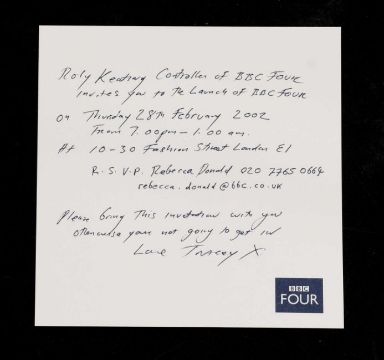 Roly Keating Controller of BBC FOUR
invites you to the Launch of BBC FOUR
on Thursday 28th February 2002
From 7.00pm – 1.00 am.
At 10-30 Fashion Street London E1
R.S.V.P. Rebecca Donald 020 7765 0664
rebecca.donald@bbc.co.uk
Please bring This invitation with you
otherwise your not going to get in
Love Tracey X
BBC
FOUR